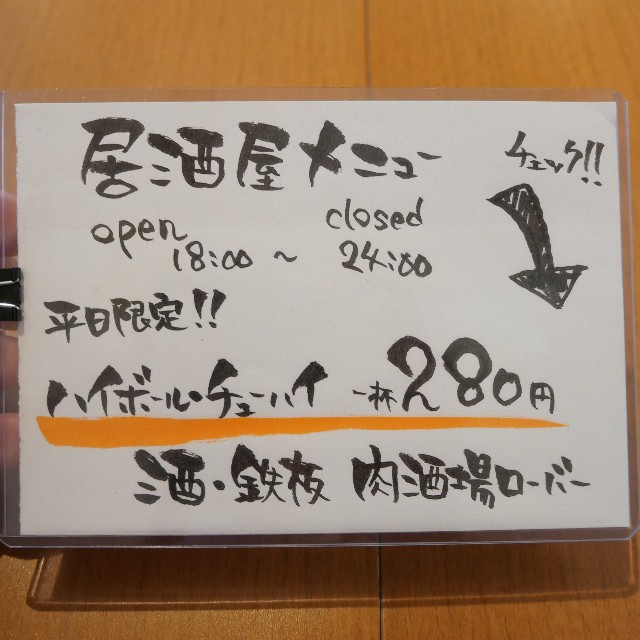 居酒屋メニュー
チェック!!
open closed
18:00 ~ 24:00
平日限定!!
ハイボール・チューハイ 一杯280円
酒・鉄板 肉酒場ローバー